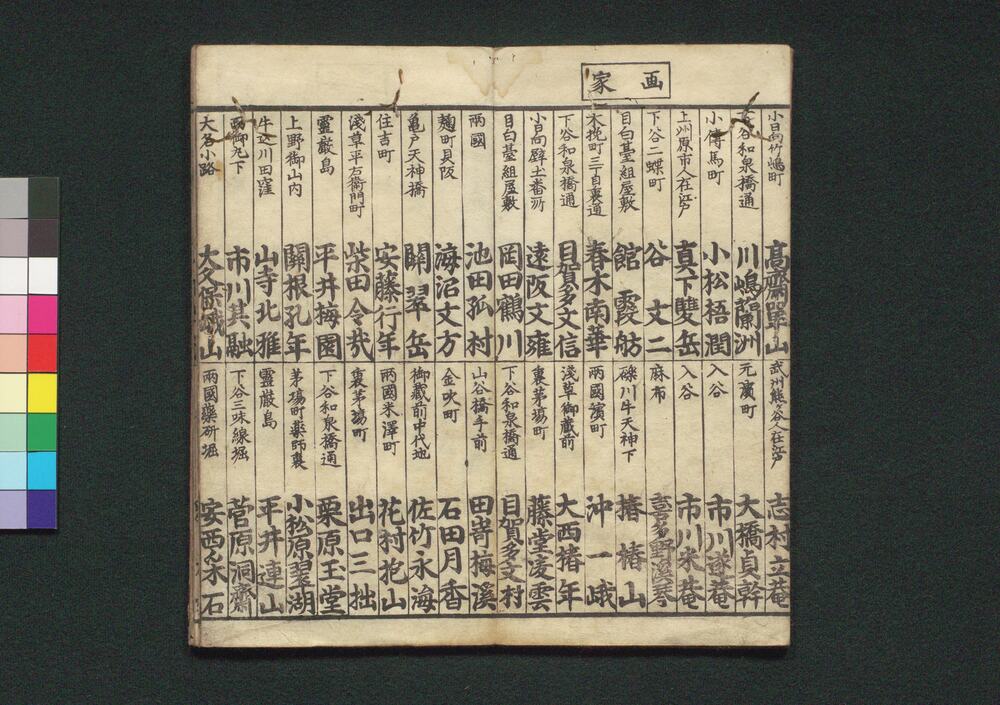 画家
小日向竹嶋町 高齋單山
下谷和泉橋通 川嶋蘭洲
小傳馬町 小松梧潤
上州原市人在江戸 真下雙岳
下谷二蝶町 谷文二
目白臺組屋敷 館霞舫
木挽町三丁目裏通 春木南華
下谷和泉橋通 目賀多文信
小日向 遠阪文雍
目白臺組屋敷 岡田鶴川
兩國 池田孤村
麹町貝阪 海沼文方
亀戸天神橋 關翠岳
住吉町 安藤行年
淺草平右衛門町 柴田令哉
靈嚴島 平井梅園
上野御山内 關根孔年
牛込川田窪 山寺北雅
西御丸下 市川其融
大名小路 大久保峨山
武州熊谷人在江戸 志村立菴
元濱町 大橋貞幹
入谷 市川遂菴
入谷 市川米菴
麻布 喜多野溪琴
礫川牛天神下 椿椿山
兩國濱町 沖一峨
淺草御藏前 大西椿年
裏茅場町 藤堂凌雲
下谷和泉橋通 目賀多文村
山谷橋手前 田嵜梅溪
金吹町 石田月香
御藏前中代地 佐竹永海
兩國米澤町 花村抱山
裏茅場町 出口三拙
下谷和泉橋通 栗原玉堂
茅場町藥師裏 小松原翠湖
靈嚴島 平井連山
下谷三味線堀 菅原洞齋
兩國藥研堀 安西於木石